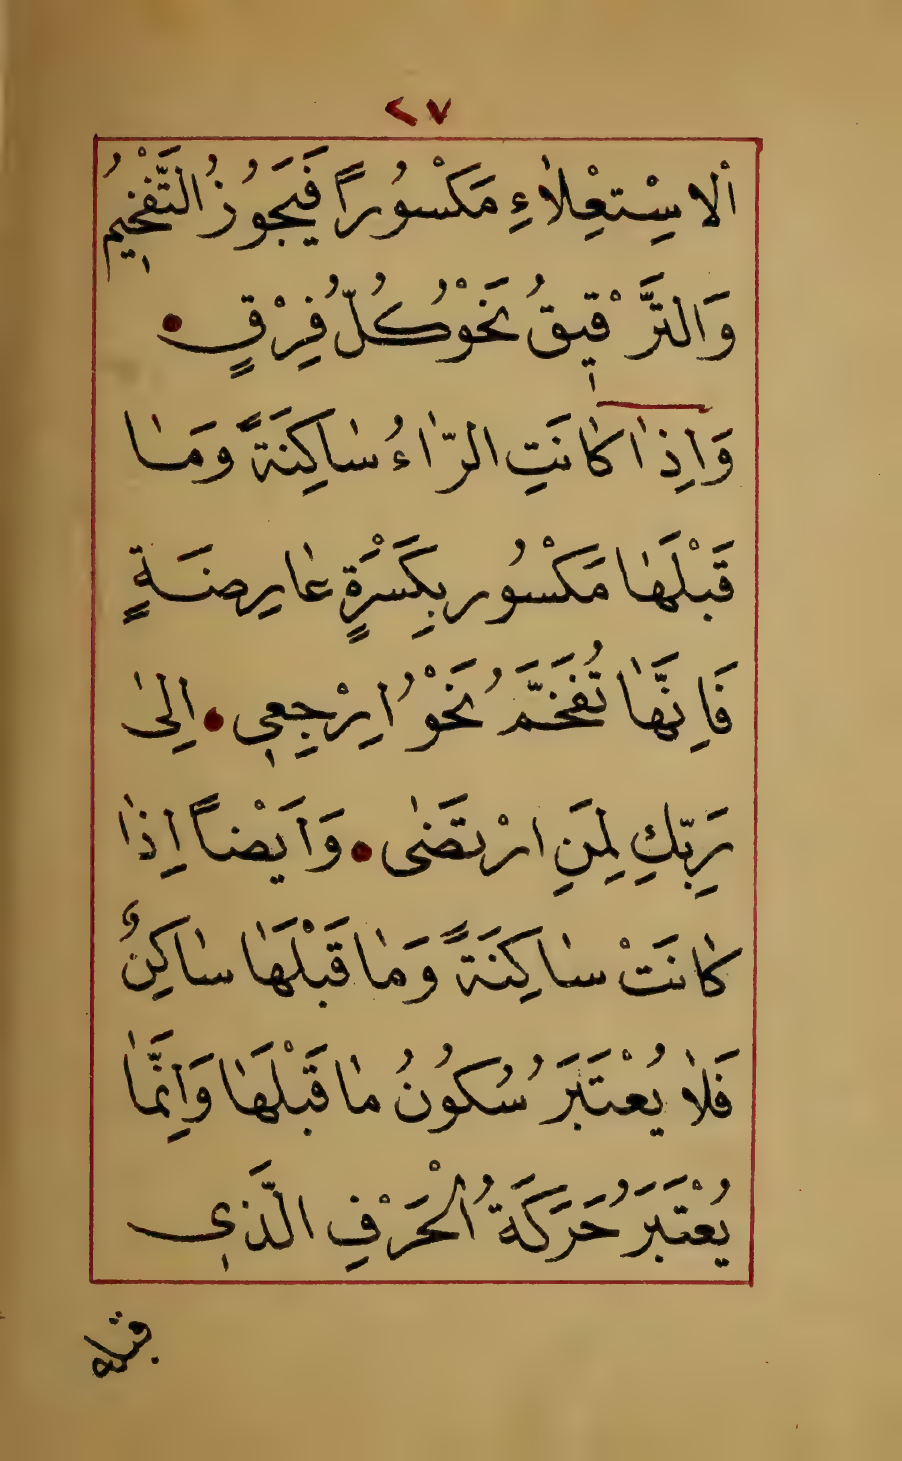 ٢٧
اْلاِسْتِعْلَاءِ مَكْسُوراً فَيَجُوزُ التَّفْخِيمُ
وَالتَّرْقِيقُ نَحْوُ كُلُّ فِرْقٍ
وَاِذَا كَانَتِ الرَّاءُ سَاكِنَةً وَمَا
قَبْلَهَا مَكْسُور بِكَسْرَةٍ عَارِضَةٍ
فَاِنَّهَا تُفَخَّمُ نَحْوُ اِرْجِعِي اِلىٰ
رَبِّكِ لِمَنِ ارْتَضٰى وَاَيْضاً اِذَا
كَانَتْ سَاكِنَةً وَمَا قَبْلَهَا سَاكِنٌ
فَلَا يُعْتَبَرُ سُكُونُ مَا قَبْلَهَا وَاِنَّمَا
يُعْتَبَرُ حَرَكَةُ الْحَرْفِ الَّذِي
قبله